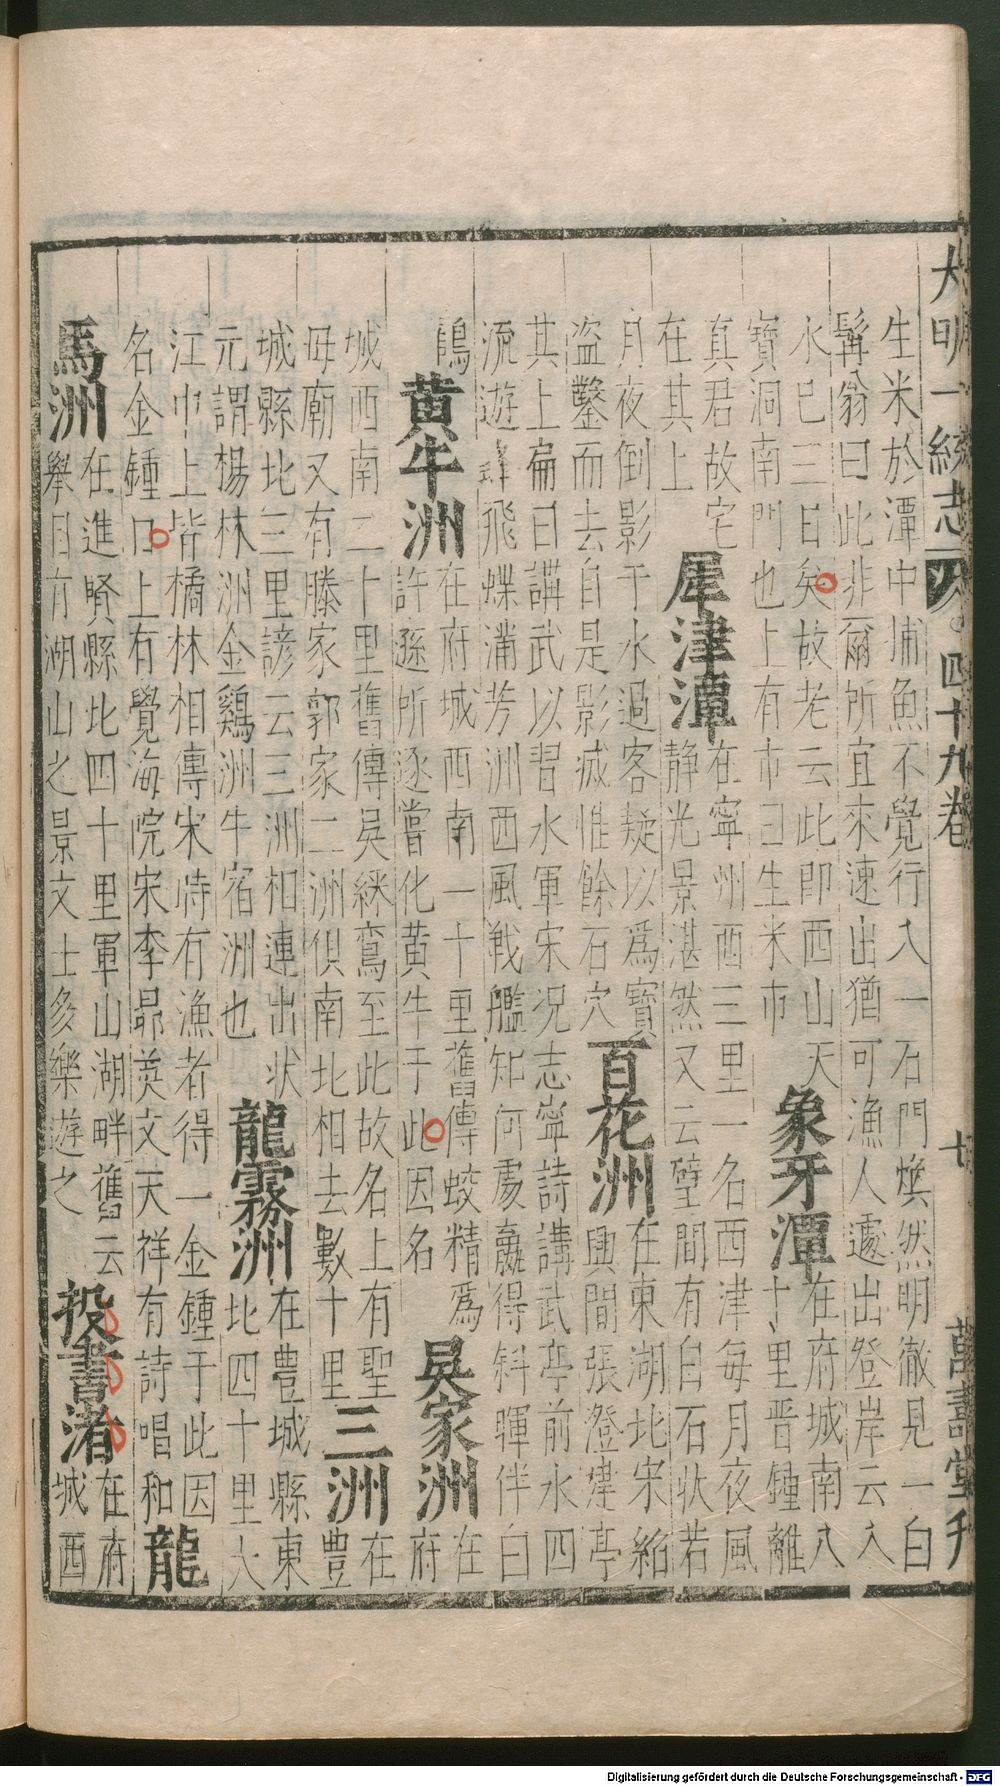 大明一統志 四十九卷 七 萬壽堂刋
生米於潭中捕魚不覺行入一石門煥然明徹見一白
髯翁曰此非爾所宜來速出猶可漁人遽出登岸云入
水巳三日矣故老云此即西山天
寶洞南門也上有市曰生米市
象牙潭
在府城南八
十里晋鍾離
真君故宅
在其上
犀津潭
在寧州西三里一名西津每月夜風
静光景湛然又云壁間有白石狀若
月夜倒影于水過客疑以爲寶
盗鑿而去自是影滅惟餘石穴
百花洲
在東湖北宋紹
興間張澄建亭
其上扁曰講武以習水軍宋況志寧詩講武亭前水四
流遊蜂飛蝶滿芳洲西風戦艦知何處贏得斜暉伴白
鷗
黄牛洲
在府城西南一十里舊傳蛟精爲
許遜所逐嘗化黄牛于此因名
吳家洲
在府
城西南二十里舊傳吳綵鸞至此故名上有聖
母廟又有滕家郭家二洲俱南北相去數十里
三洲
在豐
城縣北三里諺云三洲相連出状
元謂楊林洲金鷄洲牛宿洲也
龍霧洲
在豊城縣東
北四十里大
江中上皆橘林相傳宋時有漁者得一金鍾于此因
名金鍾口上有覺海院宋李昴英文天祥有詩唱和
龍
馬洲
在進賢縣北四十里軍山湖畔舊云
舉目有湖山之景文士多樂遊之
投書渚
在府
城西
Digitalisierung gefördert durch die Deutsche Forschungsgemeinschaft - DFG